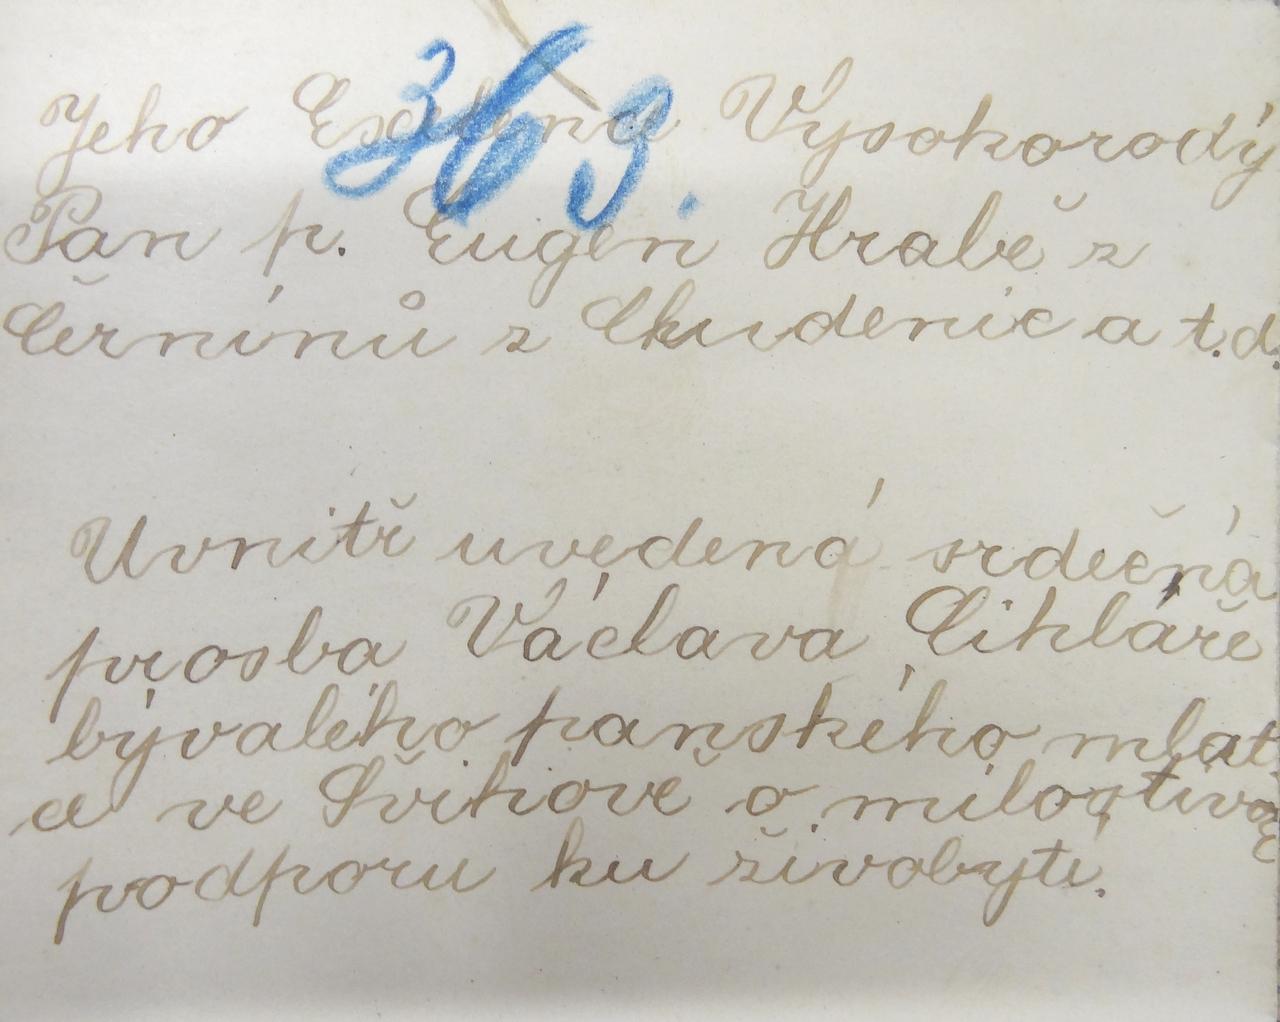 363.
Jeho Excelena Vysokorodý
Pán p. Eugen Hrabě z
Černínů z Chudenic a t.d.
Uvnitř uvedená srdečná
prosba Václava Cihláře
bývalého panského mlat
ce ve Švihově o milostivou
podporu ku živobytí.